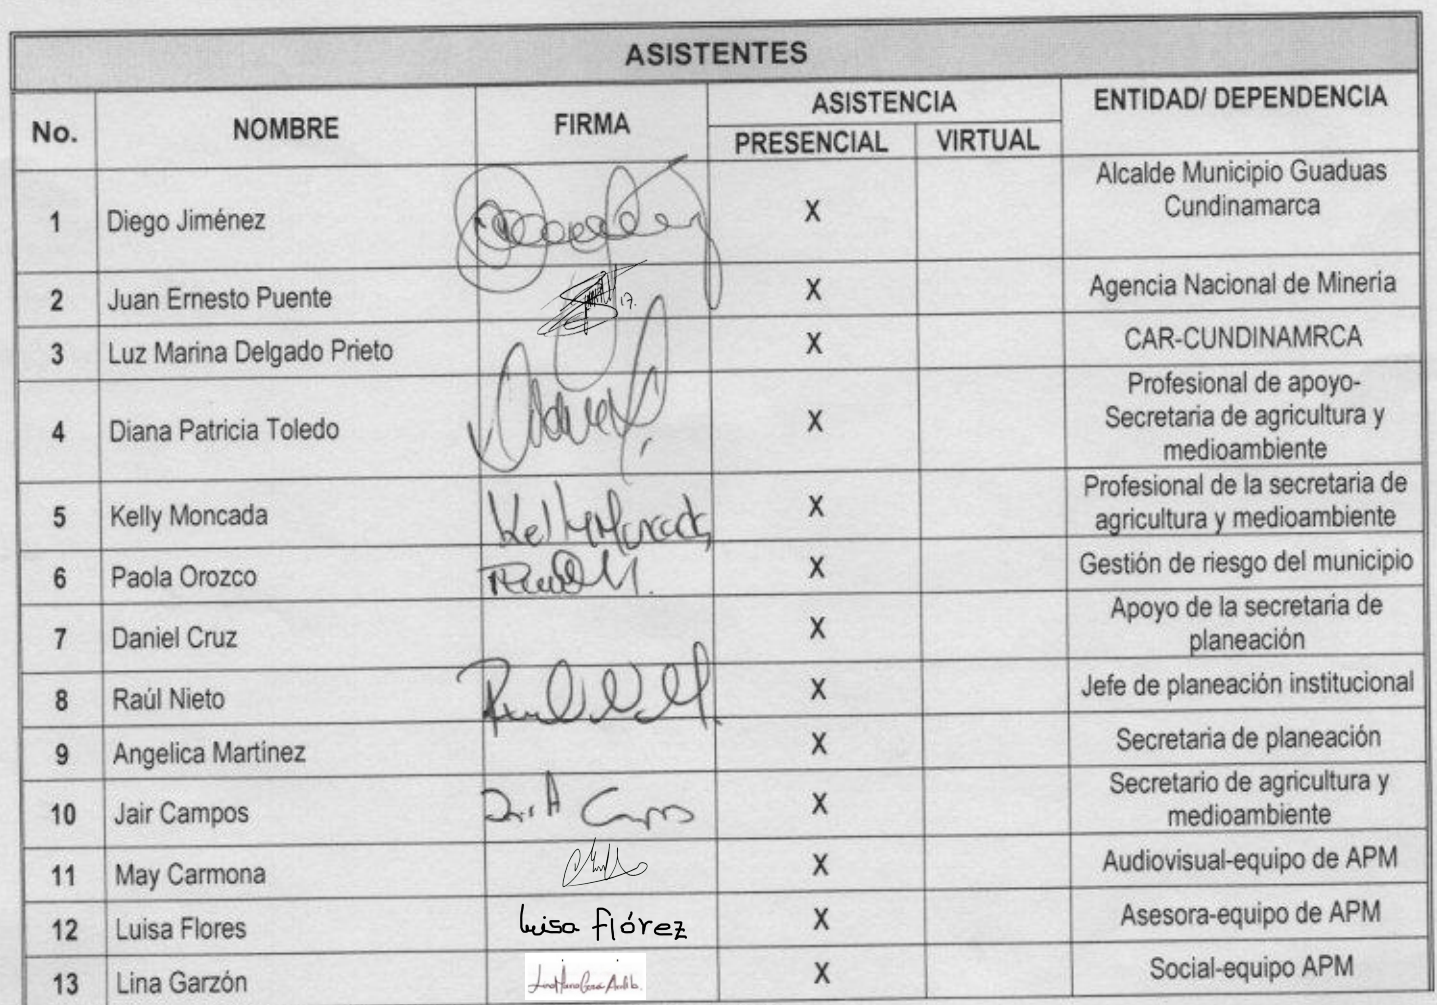 ASISTENTES
No. NOMBRE FIRMA ASISTENCIA ENTIDAD/ DEPENDENCIA
PRESENCIAL VIRTUAL
1 Diego Jiménez X Alcalde Municipio Guaduas
Cundinamarca
2 Juan Ernesto Puente 17. X Agencia Nacional de Mineria
3 Luz Marina Delgado Prieto X CAR-CUNDINAMRCA
4 Diana Patricia Toledo X Profesional de apoyo-
Secretaria de agricultura y
medioambiente
5 Kelly Moncada Kelly Moncada X Profesional de la secretaria de
agricultura y medioambiente
6 Paola Orozco X Gestión de riesgo del municipio
7 Daniel Cruz X Apoyo de la secretaria de
planeación
8 Raúl Nieto X Jefe de planeación institucional
9 Angelica Martinez X Secretaria de planeación
10 Jair Campos Jair A Campos X Secretario de agricultura y
medioambiente
11 May Carmona X Audiovisual-equipo de APM
12 Luisa Flores Luisa flórez X Asesora-equipo de APM
13 Lina Garzón X Social-equipo APM